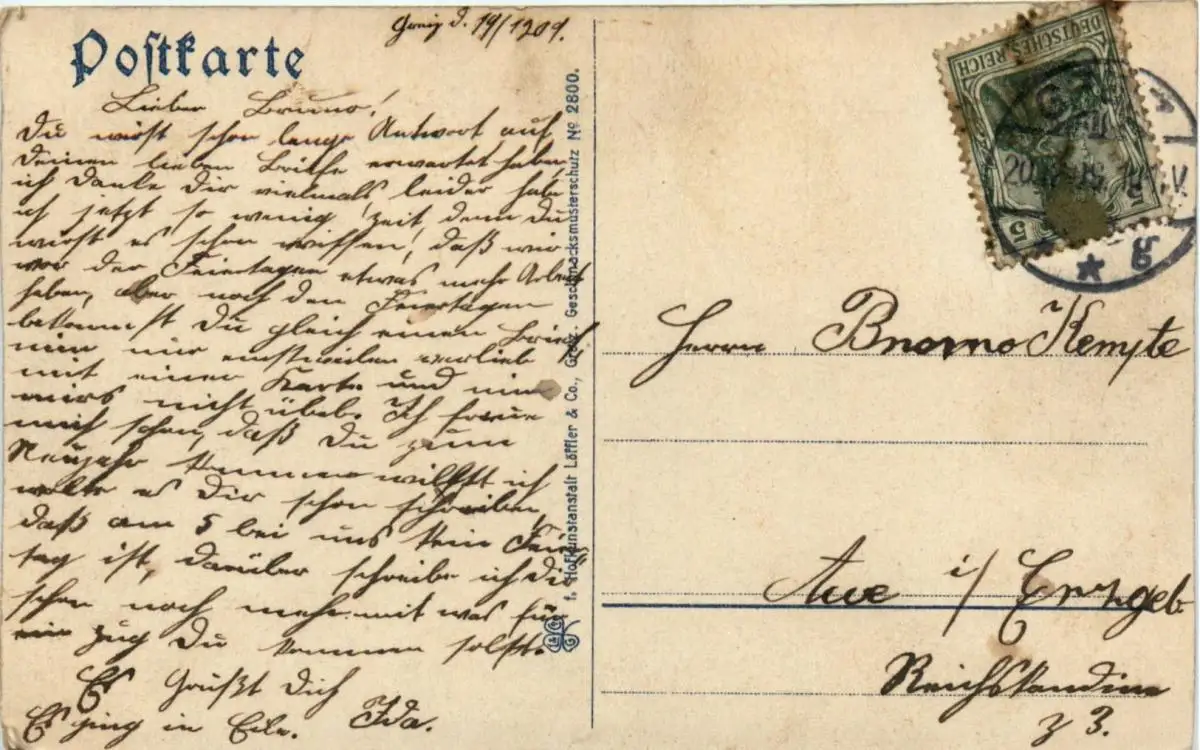 Greiz d. 19/12 09.
Postkarte
Lieber Bruno!
Du wirst schon lange Antwort auf
deinen lieben Briefe erwartet haben,
ich danke Dir vielmals leider habe
ich jetzt so wenig Zeit denn Du
wirst es schon wissen, daß wir
vor der Feiertagen etwas mehr Arbeit
haben, aber nach den Feiertagen
bekommst Du gleich einen Brief
nim nur einstweilen verlieb
mit einer Karte und nim
mirs nicht übel. Ich freue
mich schon, daß Du zum
Neujahr kommen willst ich
wollte es Dir schon schreiben,
daß am 5 bei uns kein Feier
tag ist, darüber schreibe ich Dir
schon noch mehr mit was für
ein Zug Du kommen sollst.
Es Grüßt Dich
Es ging in Eile. Ida.
f. Hofkunstanstalt Löffler & Co., Greiz. Geschmacksmusterschutz No 2800.
L&Co
G
DEUTSCHES REICH
5
5
Herrn Bruno Kempte
Aue i/ Erzgeb
Reichsstandine
z 3.